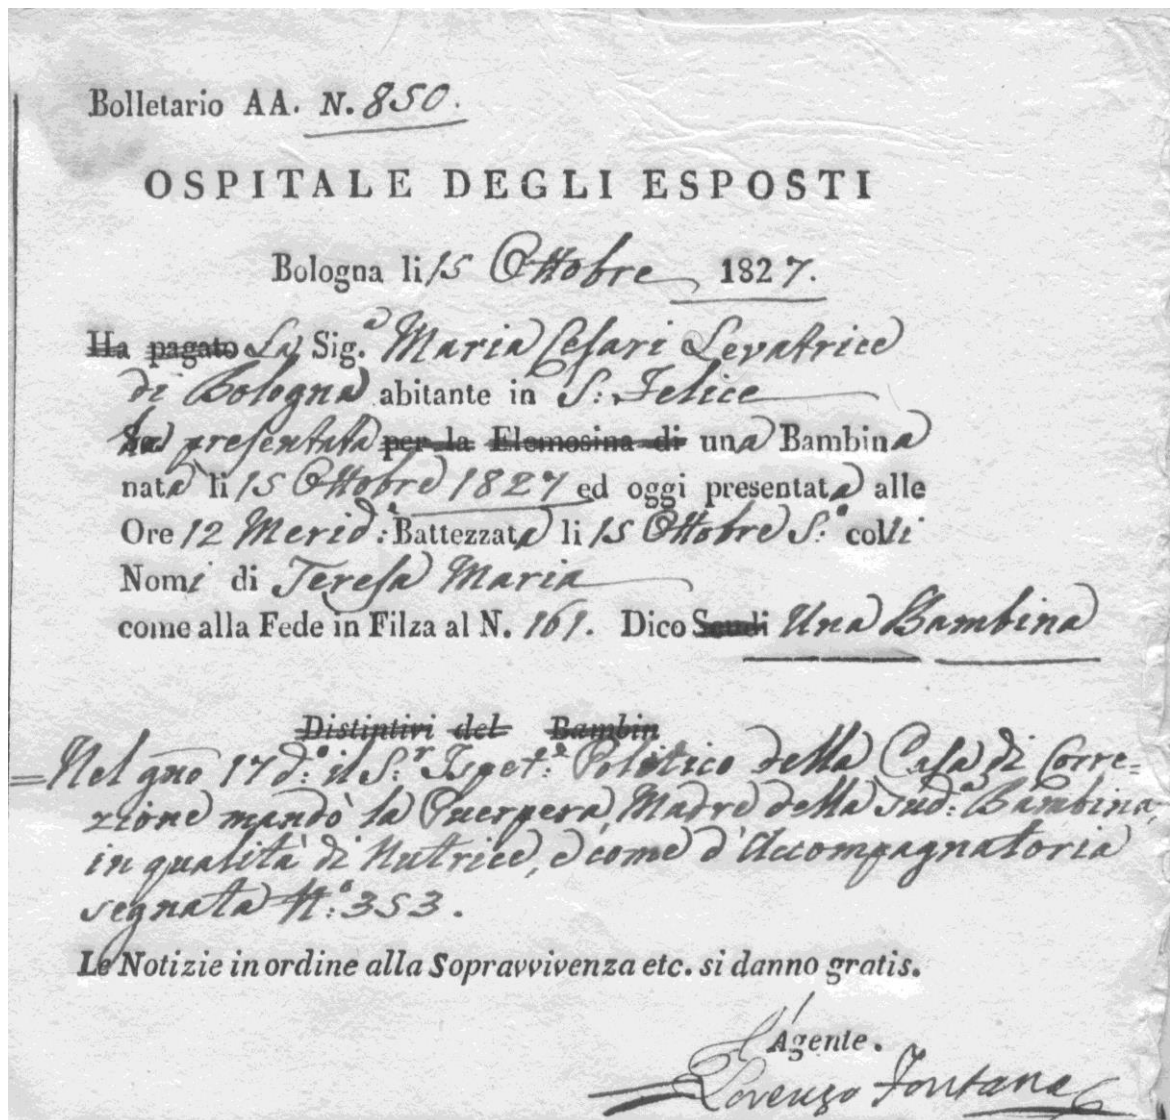 Bolletario AA. N. 850.
OSPITALE DEGLI ESPOSTI
Bologna li 15 Ottobre 1827.
Ha pagato La Sig.a Maria Cesari Levatrice
di Bologna abitante in S: Felice
ha presentata per la Elemosina di una Bambina
nata li 15 Ottobre 1827 ed oggi presentata alle
Ore 12 Merid: Battezzata li 15 Ottobre S.o colli
Nomi di Teresa Maria
come alla Fede in Filza al N. 161. Dico Scudi Una Bambina
Distintivi del Bambin
=Nel gno 17 d.o il S.r Ispet.e Politico della Casa di Corre=
zione mandò la Puerpera Madre della sud.a Bambina,
in qualità di Nutrice, e come d'Accompagnatoria
segnata N.o 353.
Le Notizie in ordine alla Sopravvivenza etc. si danno gratis.
l'Agente.
Lorenzo Fontana